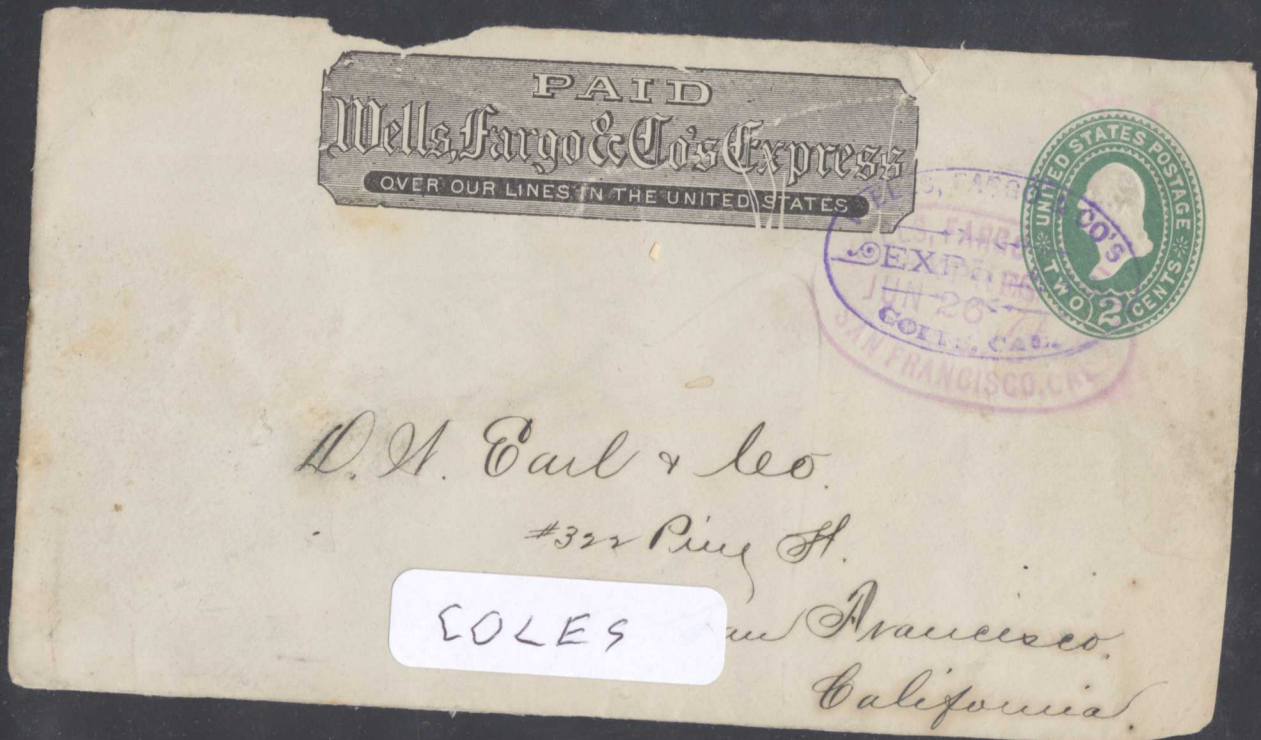 PAID
Wells, Fargo & Co's Express
OVER OUR LINES IN THE UNITED STATES
UNITED STATES POSTAGE
TWO 2 CENTS
CO'S
JUN 26
CAL.
SAN FRANCISCO, CAL
D. W. Earl & Co.
#322 Pine St.
San Francisco.
California.
COLES